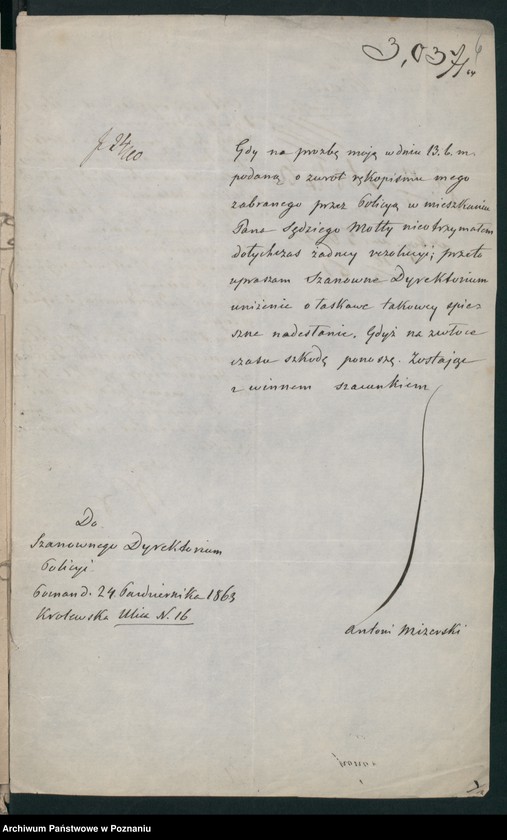 3,037/
Gdy na prozbę moją w dniu 13. b. m.
podaną o zwrot rękopismu mego
zabranego przez Policyą w mieszkaniu
Pana Sędziego Motty nieotrzymałem
dotychczas żadney rezolucyi; przeto
upraszam Szanowne Dyrektorium
uniżenie o łaskawe takowey spie-
szne nadesłanie. Gdyż na zwłoce
czasu szkodę ponoszę. Zostając
z winnem szacunkiem
Do
Szanownego Dyrektorium
Policyi
Poznań d. 24. Października 1863
Krolewska Ulica N. 16
Antoni Mizerski
Archiwum Państwowe w Poznaniu